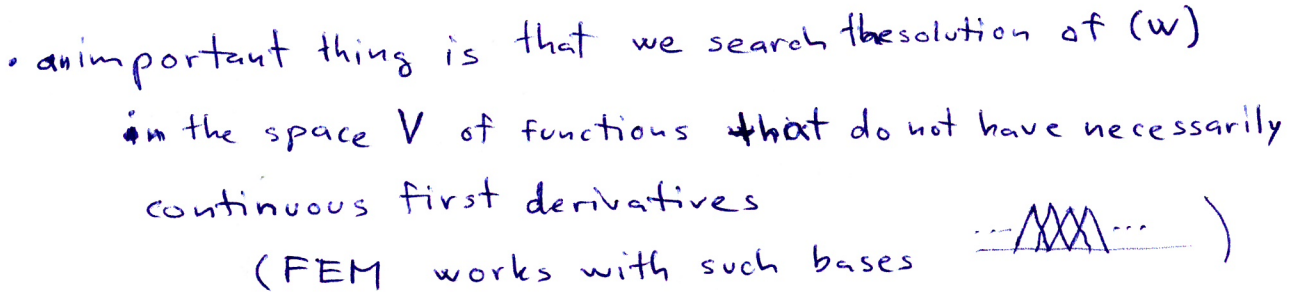 • an important thing is that we search the solution of (W)
in the space V of functions that do not have necessarily
continuous first derivatives
(FEM works with such bases ... ... )